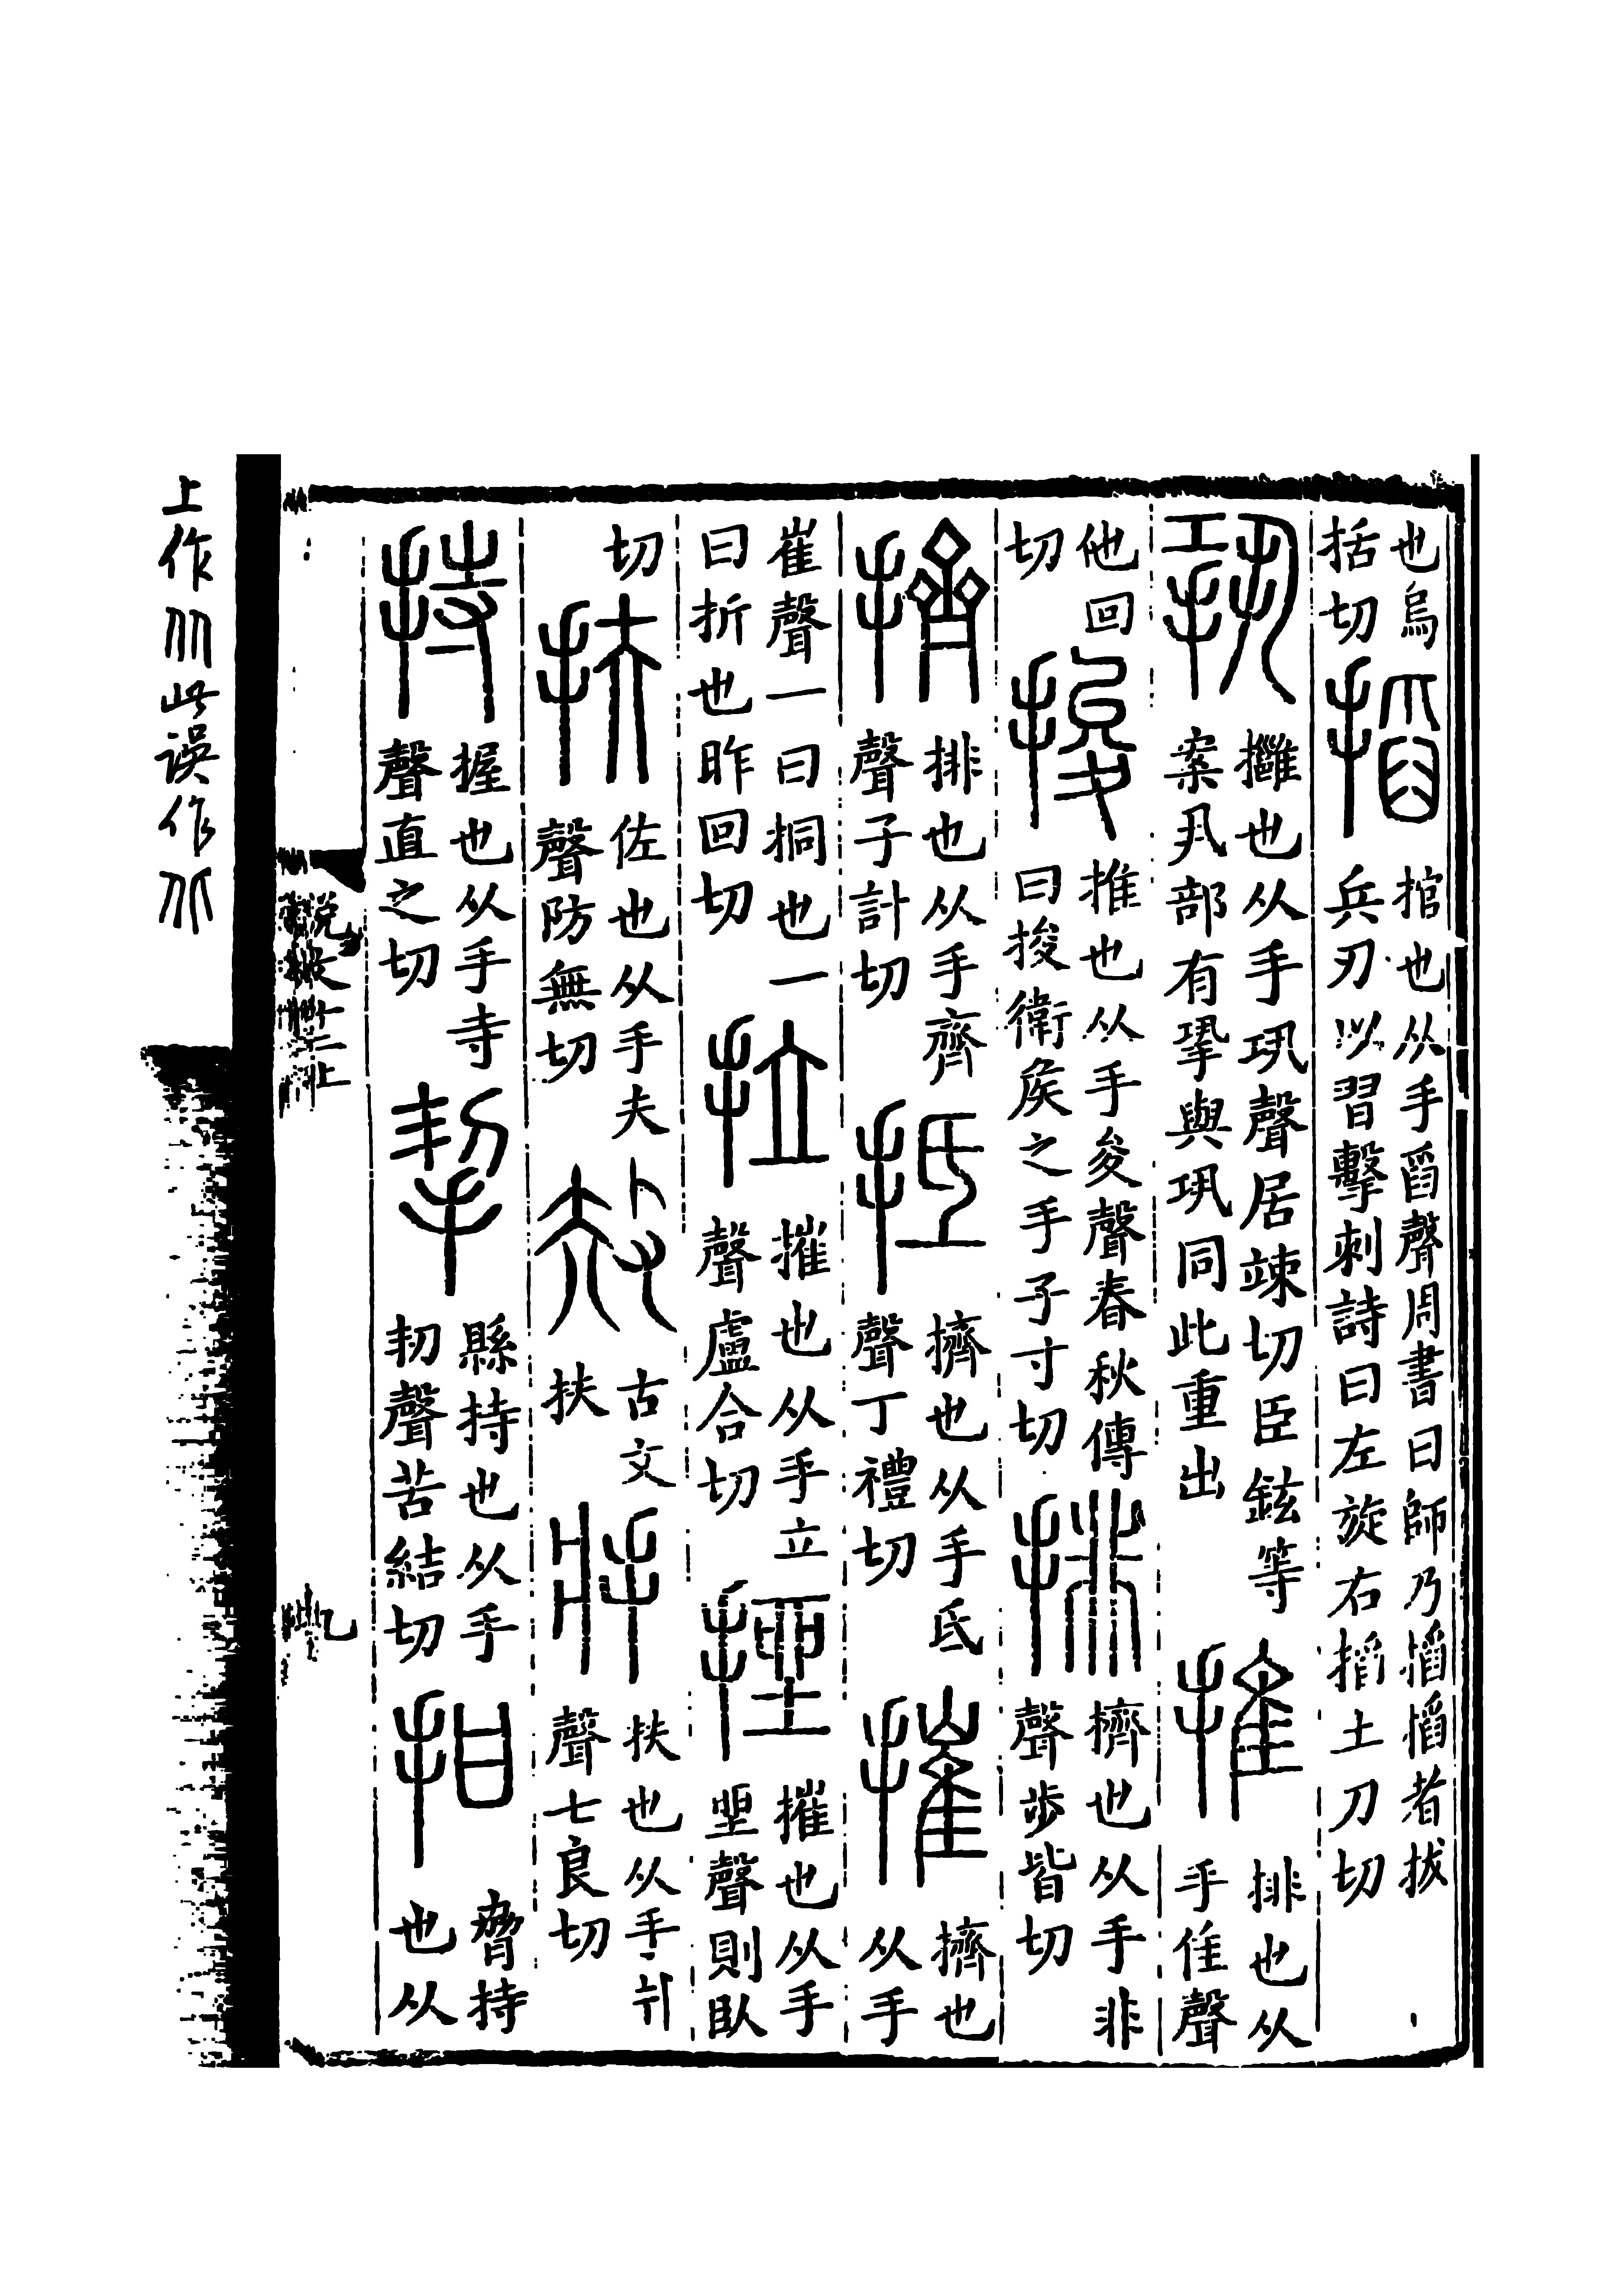 也烏括切搯捾也从手舀聲周書曰師乃搯搯者拔兵刃以習擊刺詩曰左旋右搯土刀切
㧬𢹬也从手巩聲居竦切臣鉉等案丮部有𢀜與巩同此重出推排也从手隹聲
他回切捘推也从手夋聲春秋傳曰捘衛矦之手子寸切排擠也从手非聲步皆切
擠排也从手齊聲子計切抵擠也从手氐聲丁禮切摧擠也从手
崔聲一曰挏也一曰折也昨回切拉摧也从手立聲盧合切挫摧也从手坐聲則臥
切扶佐也从手夫聲防無切古文扶𤕭扶也从手爿聲七良切
持握也从手寺聲直之切挈縣持也从手㓞聲苦結切拑脅持也从
說文十二上
上作此誤作